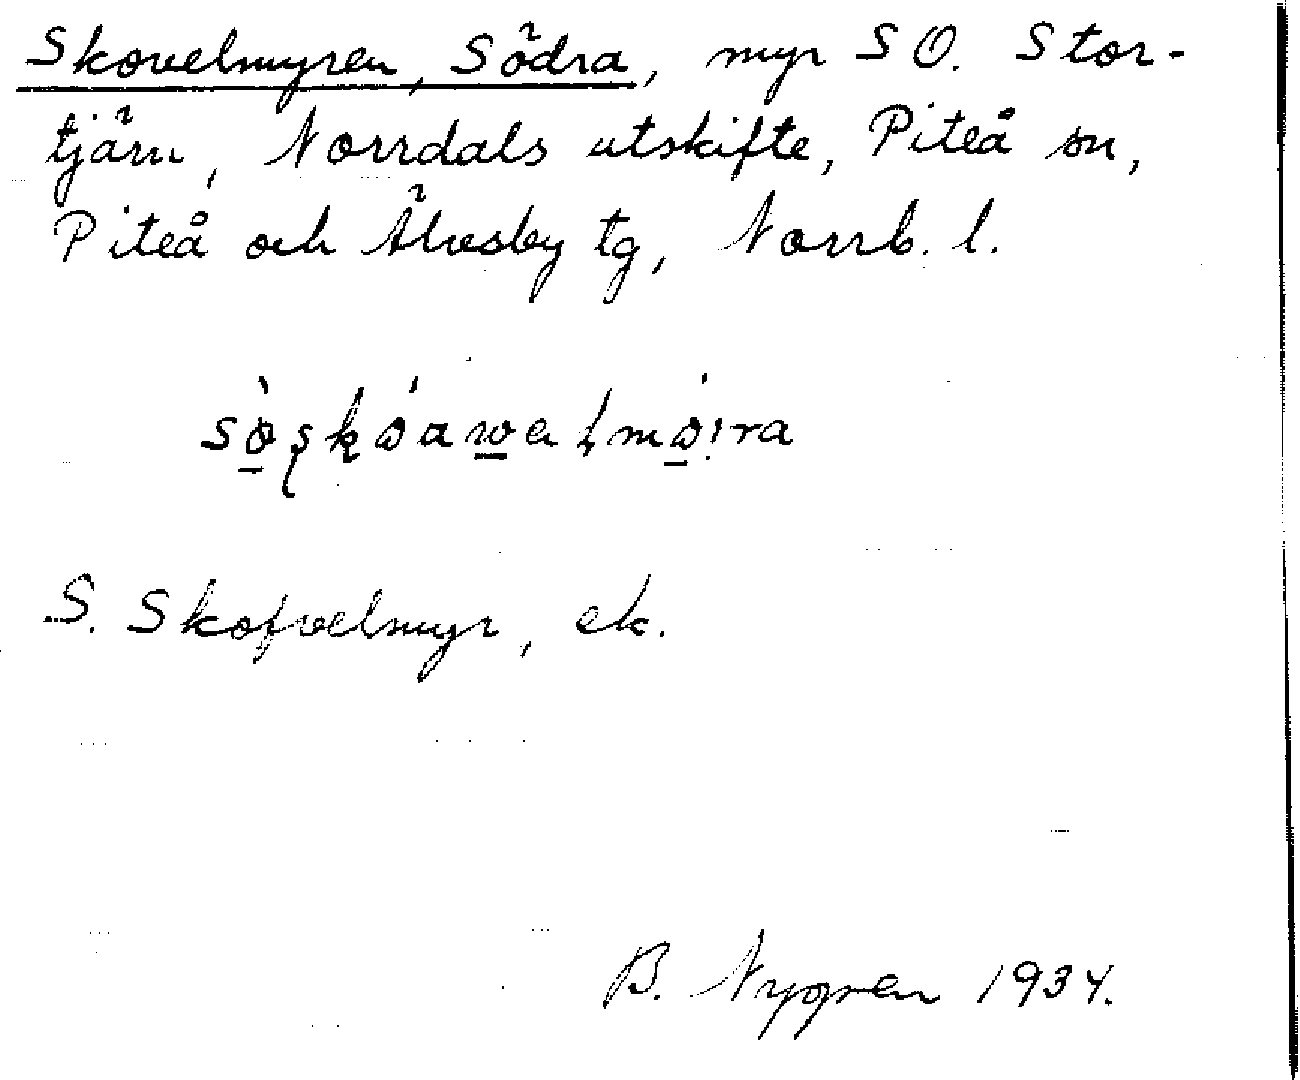 Skovelmyren, Södra, myr SO. Stor-
tjärn, Norrdals utskifte, Piteå sn,
Piteå och Älvsby tg, Norrb. l.
S. Skofvelmyr, ek.
B. Nygren 1934.